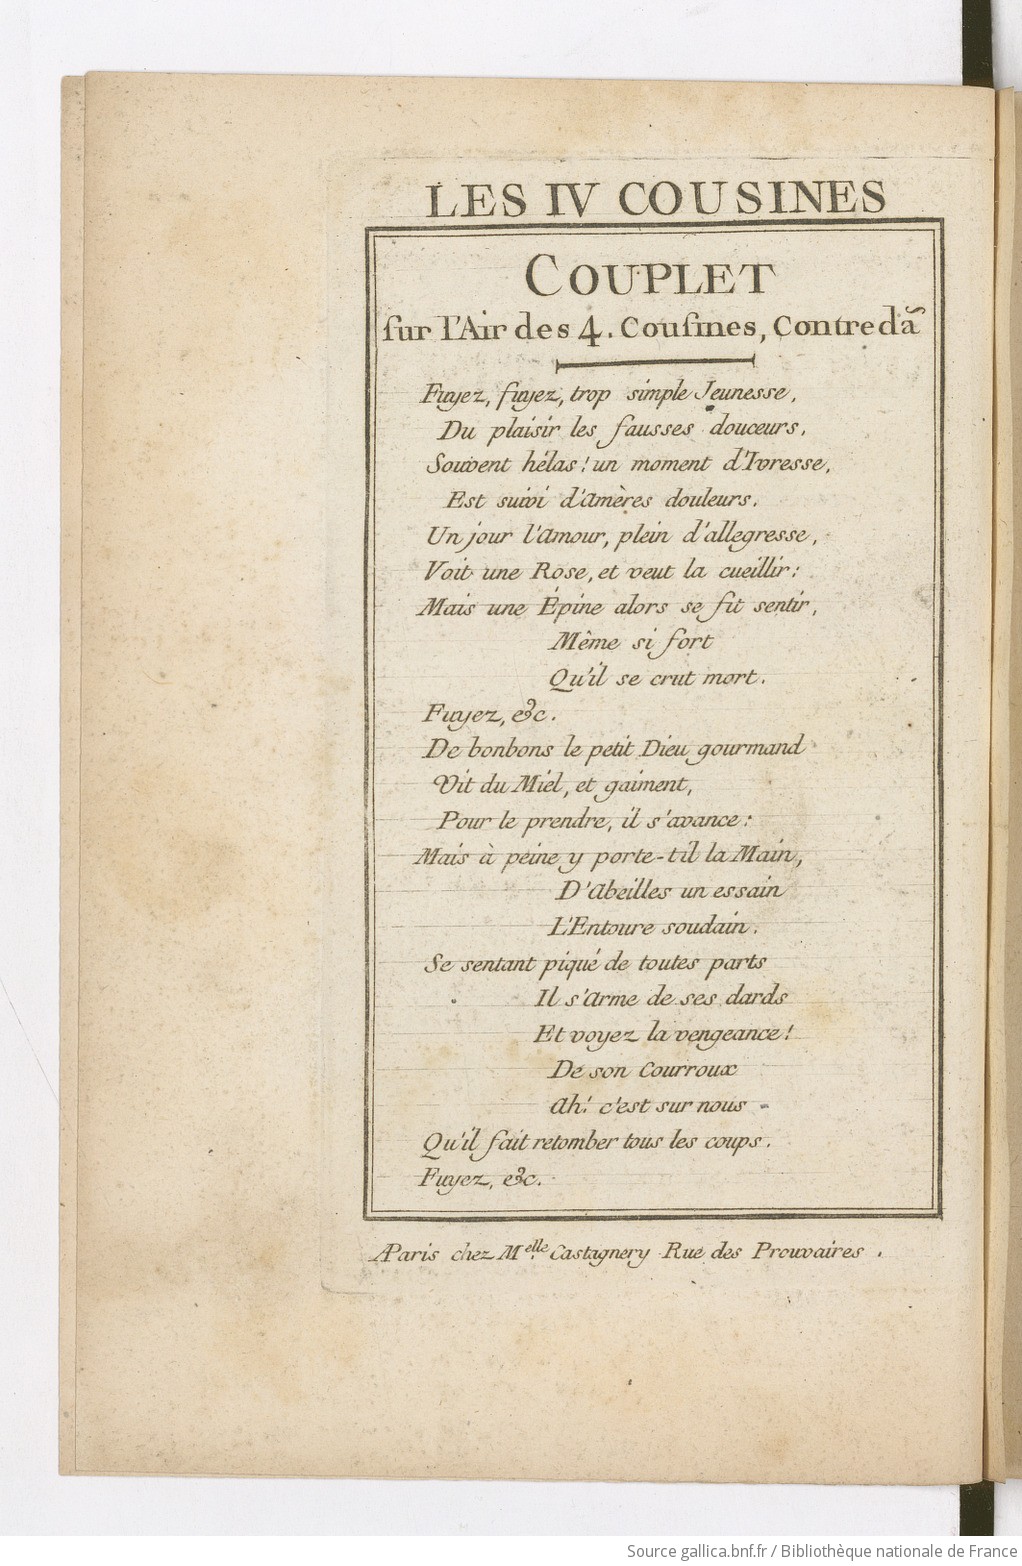 LES IV COUSINES
COUPLET
ſur l'Air des 4. Couſines, Contredãſ
Fuyez, fuyez, trop simple Jeunesse,
Du plaisir les fausses douceurs,
Souvent hélas! un moment d'Ivresse,
Est suivi d'Amères douleurs.
Un jour l'Amour, plein d'allegresse,
Voit une Rose, et veut la cueillir:
Mais une Épine alors se fit sentir,
Même si fort
Qu'il se crut mort.
Fuyez, &c.
De bonbons le petit Dieu gourmand
Vit du Miel, et gaiment,
Pour le prendre, il s'avance:
Mais à peine y porte-til la Main,
D'Abeilles un essain
L'Entoure soudain.
Se sentant piqué de toutes parts
Il s'Arme de ses dards
Et voyez la vengeance!
De son Courroux
Ah! c'est sur nous
Qu'il fait retomber tous les coups.
Fuyez, &c.
AParis chez Melle Castagnery Rue des Prouvaires.
Source gallica.bnf.fr / Bibliothèque nationale de France